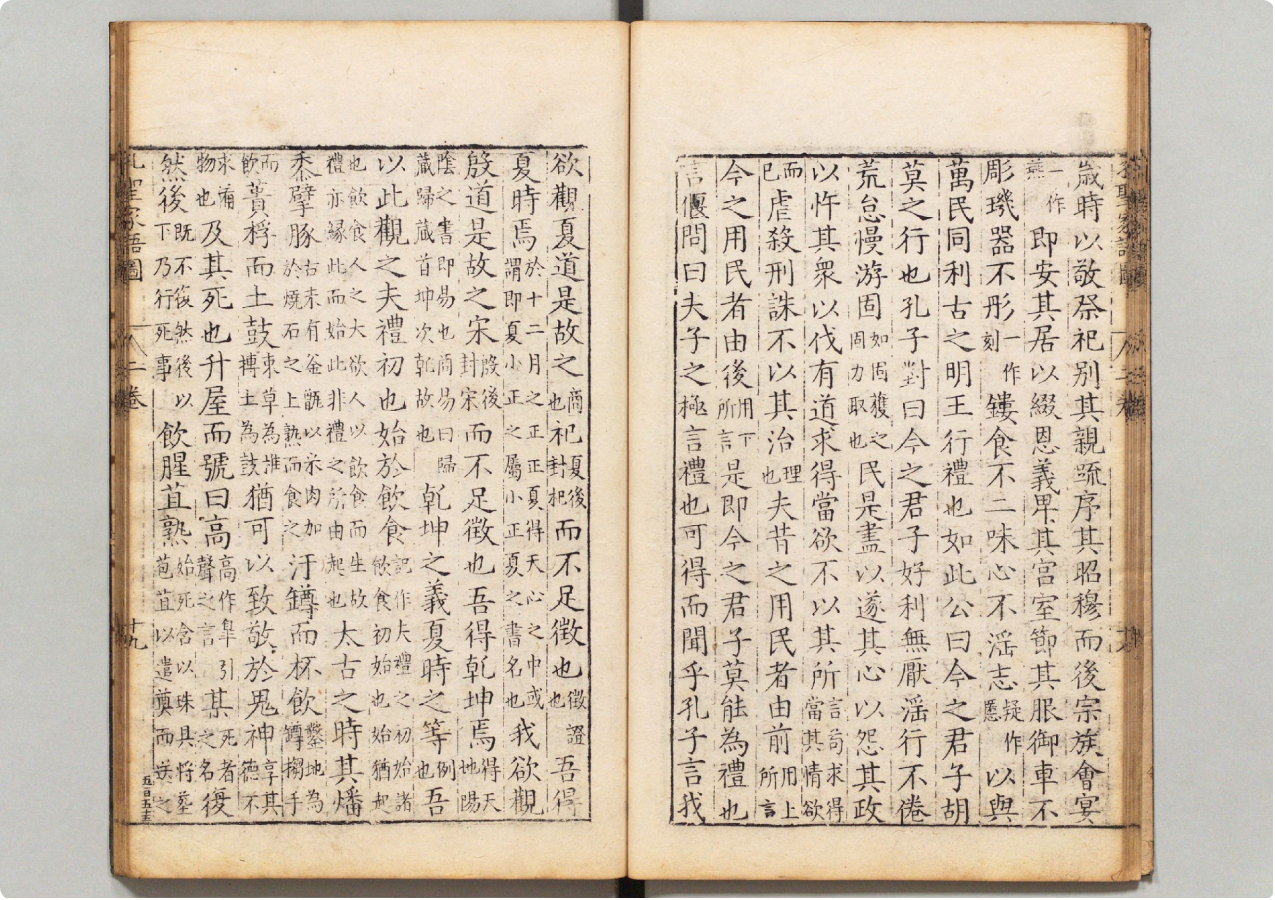 歲時以敬祭祀別其親疏序其昭穆而後宗族會宴
一作燕即安其居以綴恩義卑其宮室節其服御車不
彫璣器不彤一作刻鏤食不二味心不淫志疑作慝以與
萬民同利古之明王行禮也如此公曰今之君子胡
莫之行也孔子對曰今之君子好利無厭淫行不倦
荒怠慢游固如固獲之固力取也民是盡以遂其心以怨其政
以忤其衆以伐有道求得當欲不以其所言苟求得當其情欲
而已虐殺刑誅不以其治理也夫昔之用民者由前用上所言
今之用民者由後用下所言是即今之君子莫能為禮也
言偃問曰夫子之極言禮也可得而聞乎孔子言我
欲觀夏道是故之商也杞夏後封杞而不足徵也徵證也吾得
夏時焉於十二月之正正夏得天心之中或謂即夏小正之屬小正夏之書名也我欲觀
殷道是故之宋殷後封宋而不足徵也吾得乾坤焉得天地陽
陰之書即易也商易曰歸藏歸藏首坤次乾故也乾坤之義夏時之等例也吾
以此觀之夫禮初也始於飲食記作夫禮之初始諸飲食初始始也始猶起
也飲食人之大欲人以飲食而生故禮亦緣此而始此非禮之所由起也太古之時其燔
黍擘豚古未有釜甑以米肉加於燒石之上熟而食之汙罇而杯飲鑿地為罇搊手
而飲蕢桴而土鼓束草為椎摶土為鼓猶可以致敬於鬼神享其德不
求備物也及其死也升屋而號曰高高作皐引聲之言某死者之名復
然後既不復然後以下乃行死事飲腥苴熟始死含以珠具將葬苞苴以遣奠而送之
孔聖家語圖 八二卷 十九